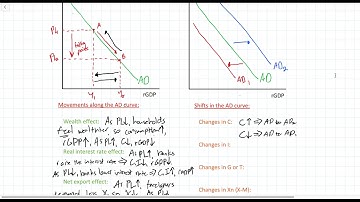 PL₁
A
PL₂
B
AD
rGDP
Y₁
Y₂
AD₁
AD
AD₂
rGDP
Movements along the AD curve:
Shifts in the AD curve:
Wealth effect: As PL↓, households
feel wealthier so consumption↑,
rGDP↑, As PL↑, C↓, rGDP↓
Real interest rate effect: As PL↑, banks
raise the interest rate ⇒ C, I↓, rGDP↓
As PL↓, banks lower interest rate ⇒ C, I↑, rGDP↑
Net export effect: As PL↑, foreigners
Changes in C: C↑ ⇒ AD to AD₂
C↓ ⇒ AD to AD₁
Changes in I:
Changes in G or T:
Changes in Xn (X-M):